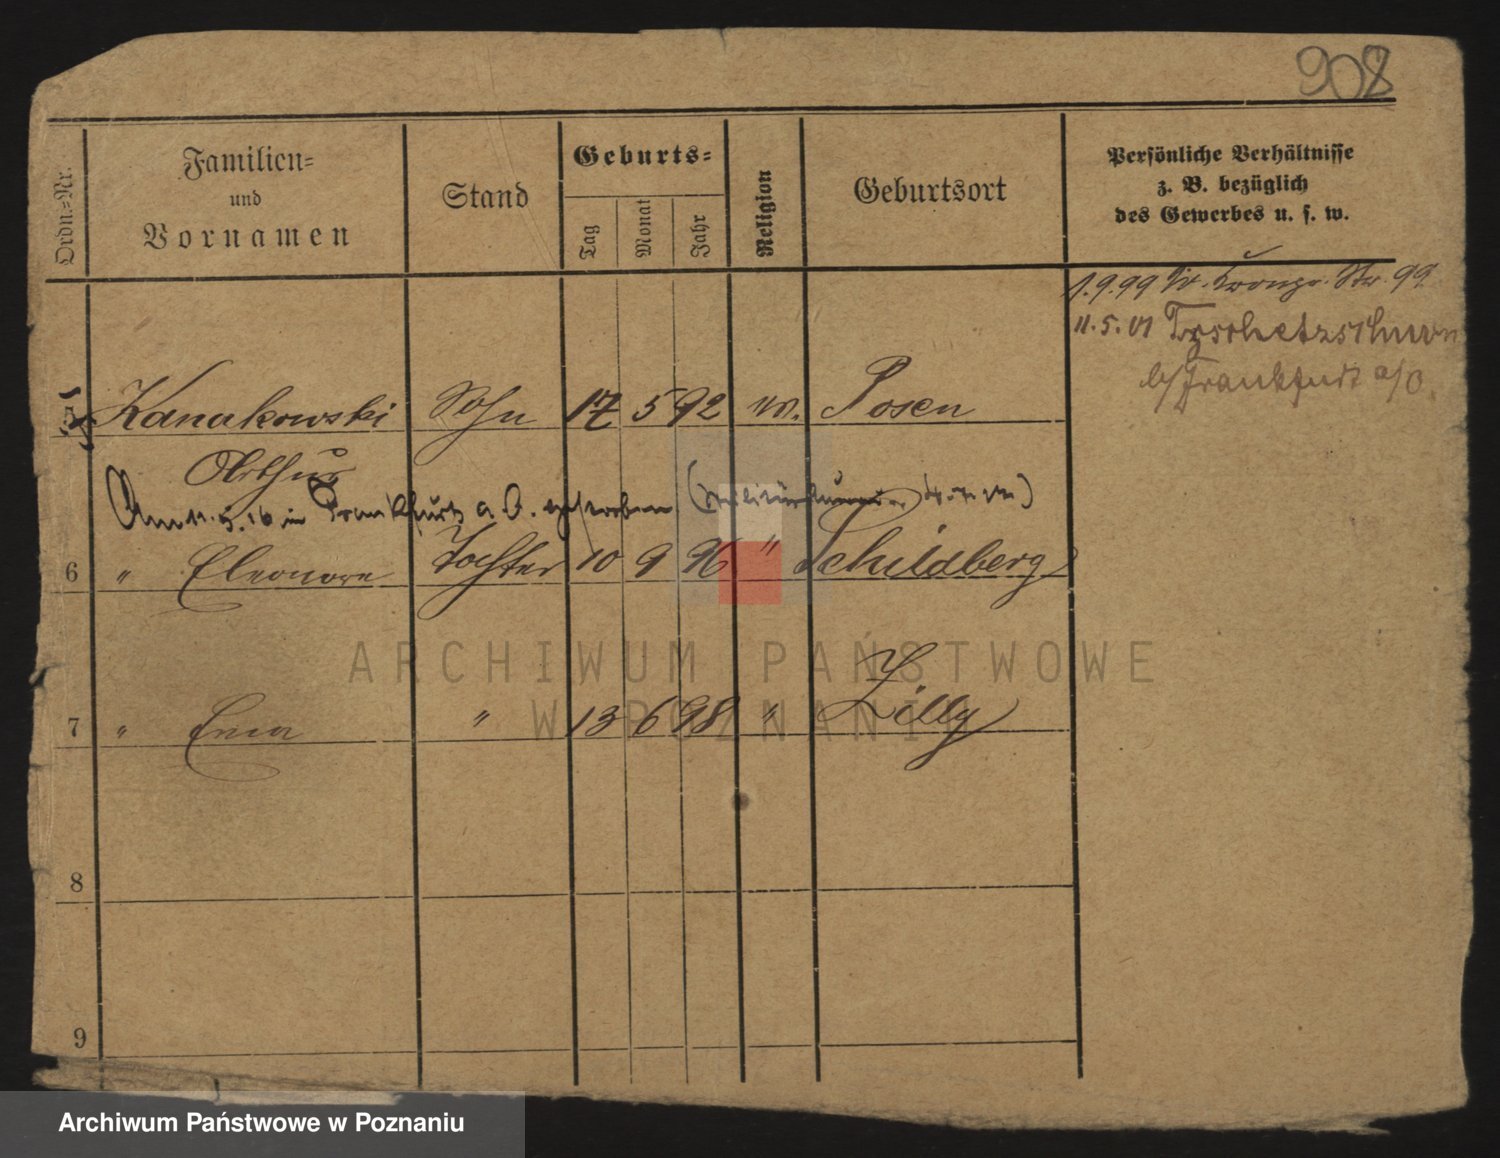 908
Ordn.-Nr.
Familien-
und
Vornamen
Stand
Geburts-
Tag
Monat
Jahr
Religion
Geburtsort
Persönliche Verhältnisse
z. B. bezüglich
des Gewerbes u. s. w.
1.9.99 Str. 99
11.5.01 Tzschetzschnow
b/ Frankfurt a/O.
5 Kanakowski Sohn 17 5 92 Posen
Arthur
Am 11.5.16 in Frankfurt a. O. gestorben
6 " Eleonore Tochter 10 9 96 " Schildberg
7 " Erna " 13 6 98 " Zilly
8
9
ARCHIWUM PAŃSTWOWE
W POZNANIU
Archiwum Państwowe w Poznaniu